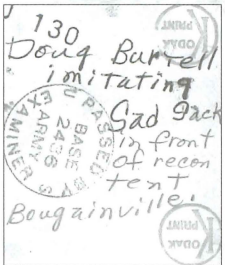 130
Doug Burrell
imitating
Sad Sack
in front
of recon
tent
Bougainville.
PASSED BY
BASE
2436
U S ARMY EXAMINER
KODAK
PRINT
KODAK
PRINT